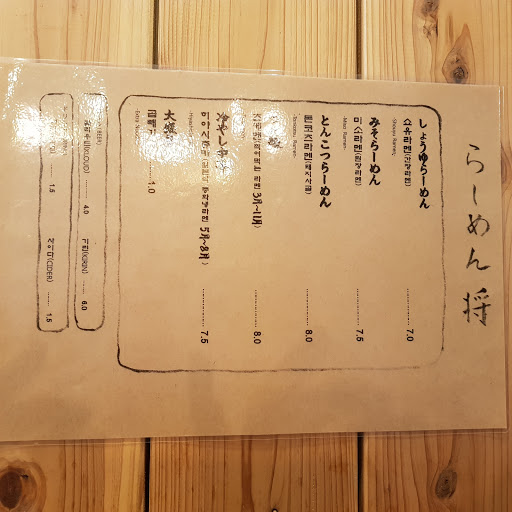 らーめん 将
しょうゆらーめん
쇼유라멘(간장라멘) ........ 7.0
-Shoyu Ramen-
みそらーめん
미소라멘(된장라멘) ........ 7.5
-Miso Ramen-
とんこつらーめん
돈코츠라멘(돼지사골) ........ 8.0
-Tonkotsu Ramen-
라멘 3月~11月) ........ 8.0
冷やし中
히야시 중화냉라멘 5月~8月) ........ 7.5
大盛
곱빼기 ........ 1.0
(BEER)
클라우드(KLOUD) ........ 4.0
기린(KIRIN) ........ 6.0
........ 1.5
사이다(CIDER) ........ 1.5